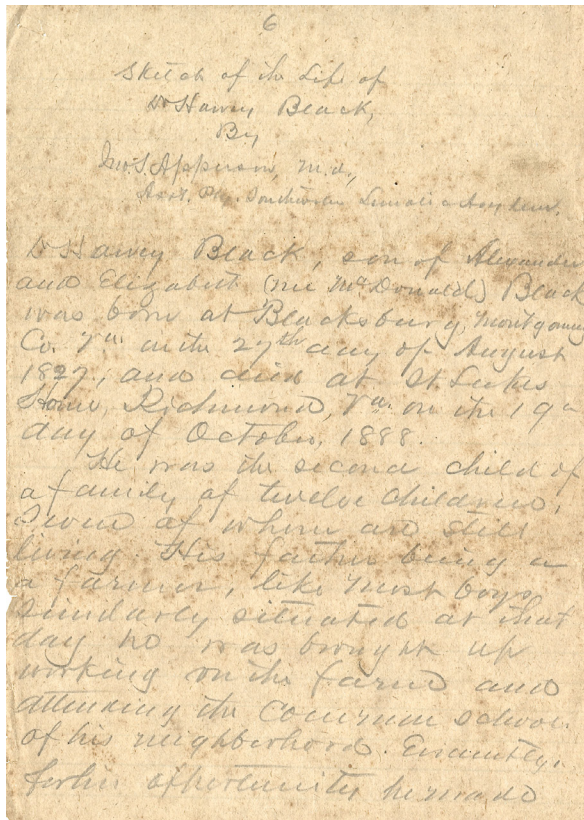 6
Sketch of the Life of
Dr Harvey Black,
By
Jno. S. Apperson, M.d.,
Asst. Southwestern Lunatic Asylum.
Dr Harvey Black, son of Alexander
and Elizabeth (nee McDonald) Black
was born at Blacksburg, Montgomery
Co. Va. on the 27th day of August
1827, and died at St. Lukes
Home, Richmond, Va. on the 19th
day of October, 1888.
He was the second child of
a family of twelve children,
Seven of whom are still
living. His father being a
a farmer, like most boys
Similarly situated at that
day he was brought up
working on the farm and
attending the Common school
of his neighborhood. Evidently,
for his opportunities he made